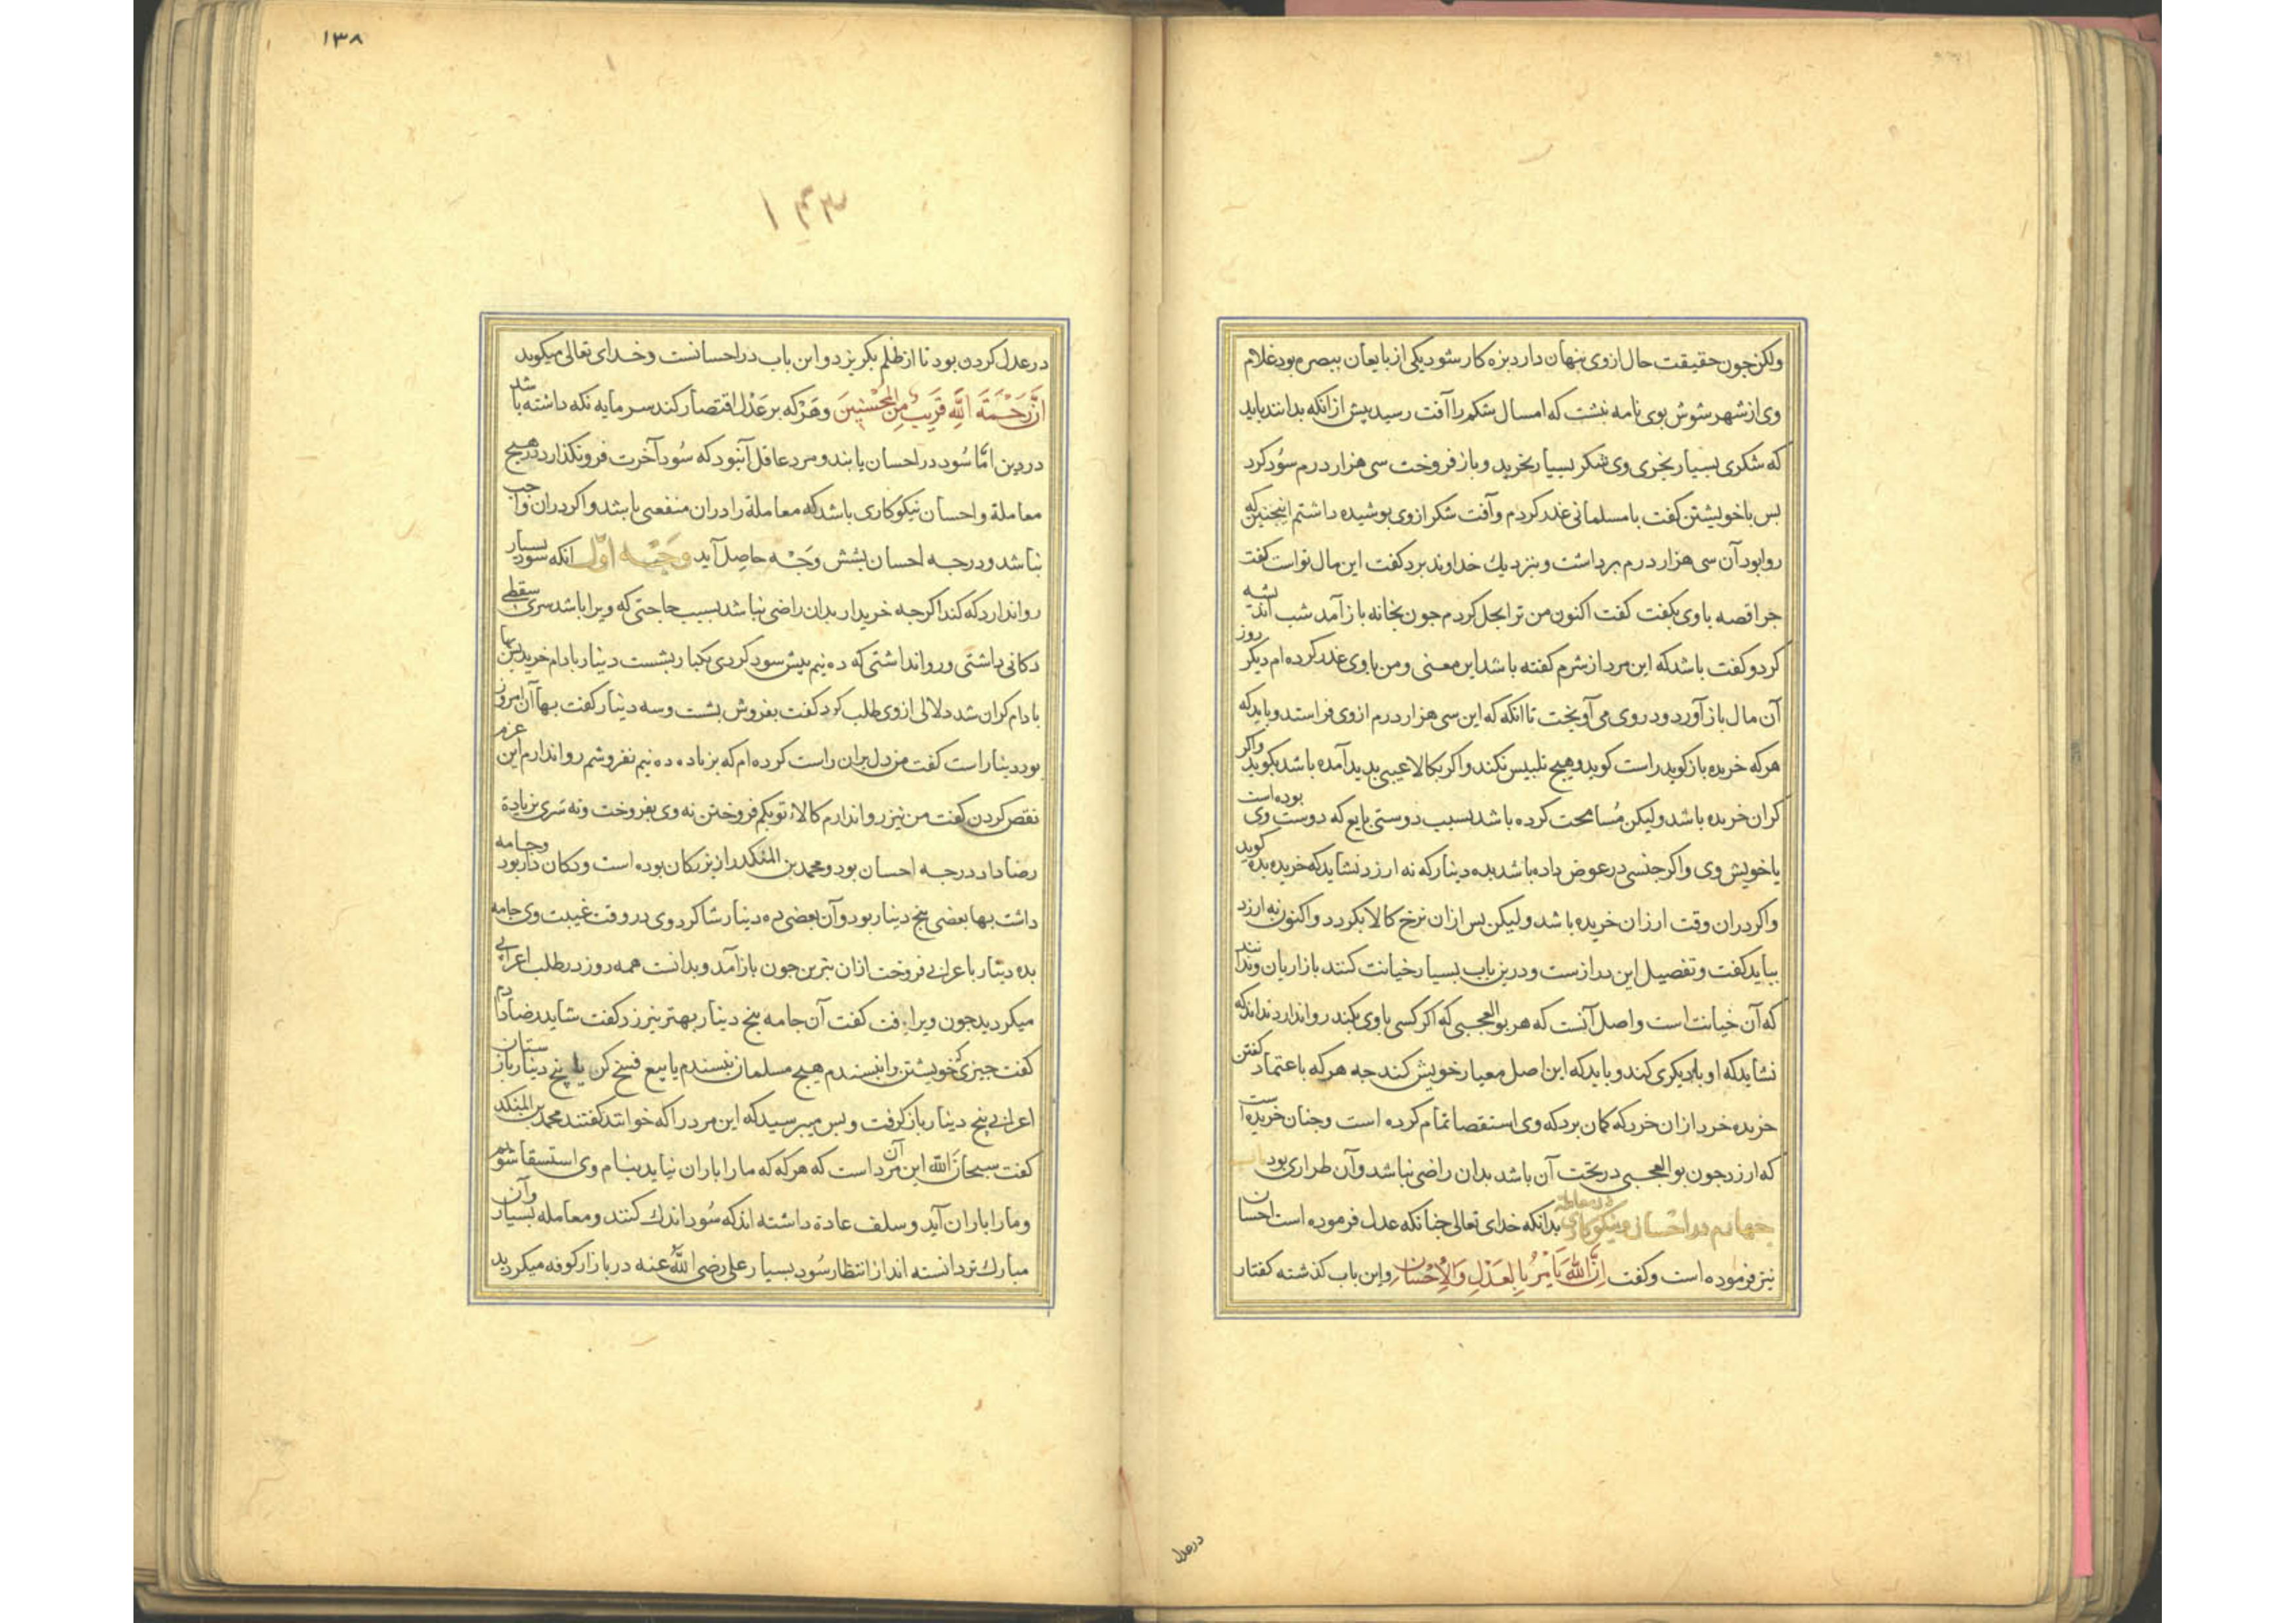 ولکن جون حقیقت حال ازوی پنهان دارد بزه کار شود یکی از بایعان ببصره بود غلام
وی از شهر شوش بوی نامه نبشت که امسال شکر را آفت رسید پیش از آنکه بدانند باید
که شکری بسیار بخری وی شکر بسیار بخرید و باز فروخت سی هزار درم سُود کرد
بس با خویشتن کفت با مسلمانی غدر کردم و آفت شکر ازوی بوشیده داشتم اینجنین که
روا بود آن سی هزار درم برداشت و بنزدیك خداوند برد کفت این مال تواست کفت
جرا قصه با وی بکفت کفت اکنون من ترا بحل کردم جون بخانه باز آمد شب اندیشه
کرد و کفت باشد که این مرد از شرم کفته باشد این معنی و من با وی غدر کرده ام دیکر روز
آن مال باز آورد و در وی می آویخت تا آنکه که این سی هزار درم ازوی فراستد و باید که
هر که خریده باز کوید راست کوید و هیج تلبیس نکند و اکر بکالا عیبی بدید آمده باشد بکوید و اکر
کران خریده باشد ولیکن مُسامحت کرده باشد بسبب دوستی بایع که دوست وی بوده است
یا خویش وی و اکر جنسی در عوض داده باشد بده دینار که نه ارزد نشاید که خریده بده کوید
و اکر دران وقت ارزان خریده باشد ولیکن بس ازان نرخ کالا بکردد و اکنون نه ارزد
بباید کفت و تفصیل این درازست و درین باب بسیار خیانت کنند بازاریان و ندانند
که آن خیانت است و اصل آنست که هر بوالعجبی که اکر کسی با وی بکند روا ندارد نداند که
نشاید که او با دیکری کند و باید که این اصل معیار خویش کند جه هر که باعتماد کفتن
خریده خرد ازان خرد که کمان برد که وی استقصا تمام کرده است و جنان خریده است
که ارزد جون بوالعجبی در تحت آن باشد بدان راضی نباشد و آن طراری بود باب
جهارم در احسان و نیکوکاری در معاملة بدانکه خدای تعالی جنانکه عدل فرموده است احسان
نیز فرموده است و کفت اِنَّ اللهَ یَأمُرُ بِالعَدْلِ وَالاِحْسَانِ و این باب کذشته کفتار
درعدل
۱۳۸
در عدل کردن بود تا از ظلم بکریزد و این باب در احسانست و خدای تعالی میکوید
اِنَّ رَحْمَةَ اللهِ قَرِیبٌ مِنَ المُحْسِنِینَ و هَرکه بر عَدْل اقتصار کند سرمایه نکه داشته باشد
در دین امّا سُود در احسان یابند و مرد عاقل آنبود که سُود آخرت فرو نکذارد در هیج
معاملة و احسان نیکوکاری باشد که معاملة را دران منفعتی باشد و اکر دران واجب
نباشد و درجه احسان بشش وَجْه حاصل آید وَجْه اوّل آنکه سود بسیار
روا ندارد که کند اکرجه خریدار بدان راضی نباشد بسبب حاجتی که ویرا باشد سری سقطی
دکانی داشتی و روا نداشتی که ده نیم بیش سود کردی یکبار بشست دینار بادام خرید بس بها
بادام کران شد دلالی ازوی طلب کرد کفت بفروش بشست و سه دینار کفت بها آن امروز
نود دینار است کفت من دل بران راست کرده ام که بزیاده ده نیم نفروشم روا ندارم این عزم
نقص کردن کفت من نیز روا ندارم کالاء تو بکم فروختن نه وی بفروخت و نه سَری بزیادة
رضا داد درجه احسان بود و محمد بن المنکدر از بزرکان بوده است و دکان دار بود و جامه
داشت بها بعضی بنج دینار بود و آن بعضی ده دینار شاکرد وی در وقت غیبت وی جامه
بده دینار باعرابی فروخت ازان بترین جون باز آمد و بدانست همه روز در طلب اعرابی
میکردید جون ویرا یافت کفت آن جامه بنج دینار بهتر نیرزد کفت شاید رضا دادم
کفت جیزی که خویشتن را نبسندم هیج مسلمان نبسندم یا بیع فسخ کن یا بنج دینار باز ستان
اعرابی بنج دینار باز کرفت و بس میبرسید که این مرد را که خوانند کفتند محمد بن المنکدر
کفت سبحان الله این آن مرد است که هرکه که ما را باران نیاید بنام وی استسقا شویم
و ما را باران آید و سلف عادة داشته اند که سُود اندك کنند و معامله بسیار و آن
مبارك تر دانسته اند از انتظار سُود بسیار علی رضی اللهُ عنه در بازار کوفه میکردید